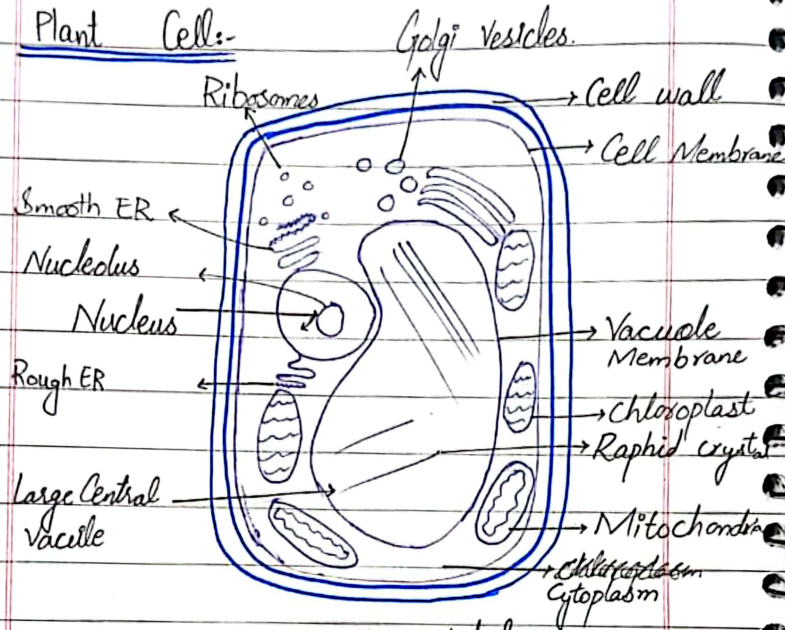 Plant Cell:-
Golgi Vesicles.
Ribosomes
Cell wall
Cell Membrane
Smooth ER
Nucleolus
Nucleus
Vacuole
Membrane
Rough ER
Chloroplast
Raphid crystal
Large Central
Vacule
Mitochondria
Cytoplasm